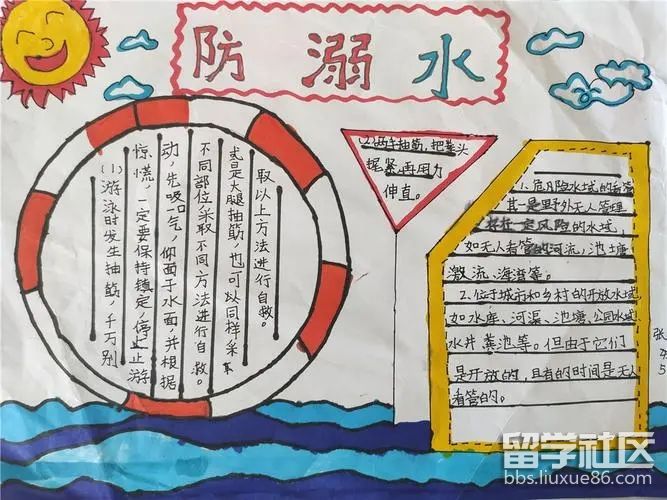 防溺水
(1)游泳时发生抽筋,千万别
惊慌,一定要保持镇定,停止游
动,先吸一口气,仰面于水面,并根据
不同部位采取不同方法进行自救。
或是大腿抽筋,也可以同样采
取以上方法进行自救。
(2)两手抽筋,把拳头
握紧再用力
伸直。
1.危险水域的看管
其一是野外无人管理
一定风险的水域,
如无人看管的河流,池塘
激流、海滩等。
2.位于城市和乡村的开放水域
如水库、河渠、池塘、公园水域
水井粪池等。但由于它们
是开放的,且有的时间是无人
看管的。
张
5
留学社区
bbs.liuxue86.com